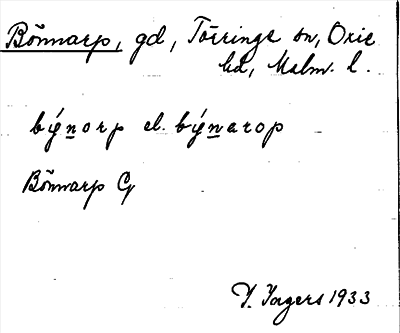 Bönnarp, gd, Törringe sn, Oxie
hd, Malm. l.
býnorp el. býnarop
Bönnarp G
I. Ingers 1933